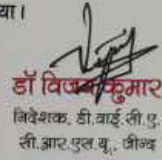 या।
डॉ विजय कुमार
निदेशक, डी.वाई.सी.ए.
सी.आर.एस.यू., जीन्द